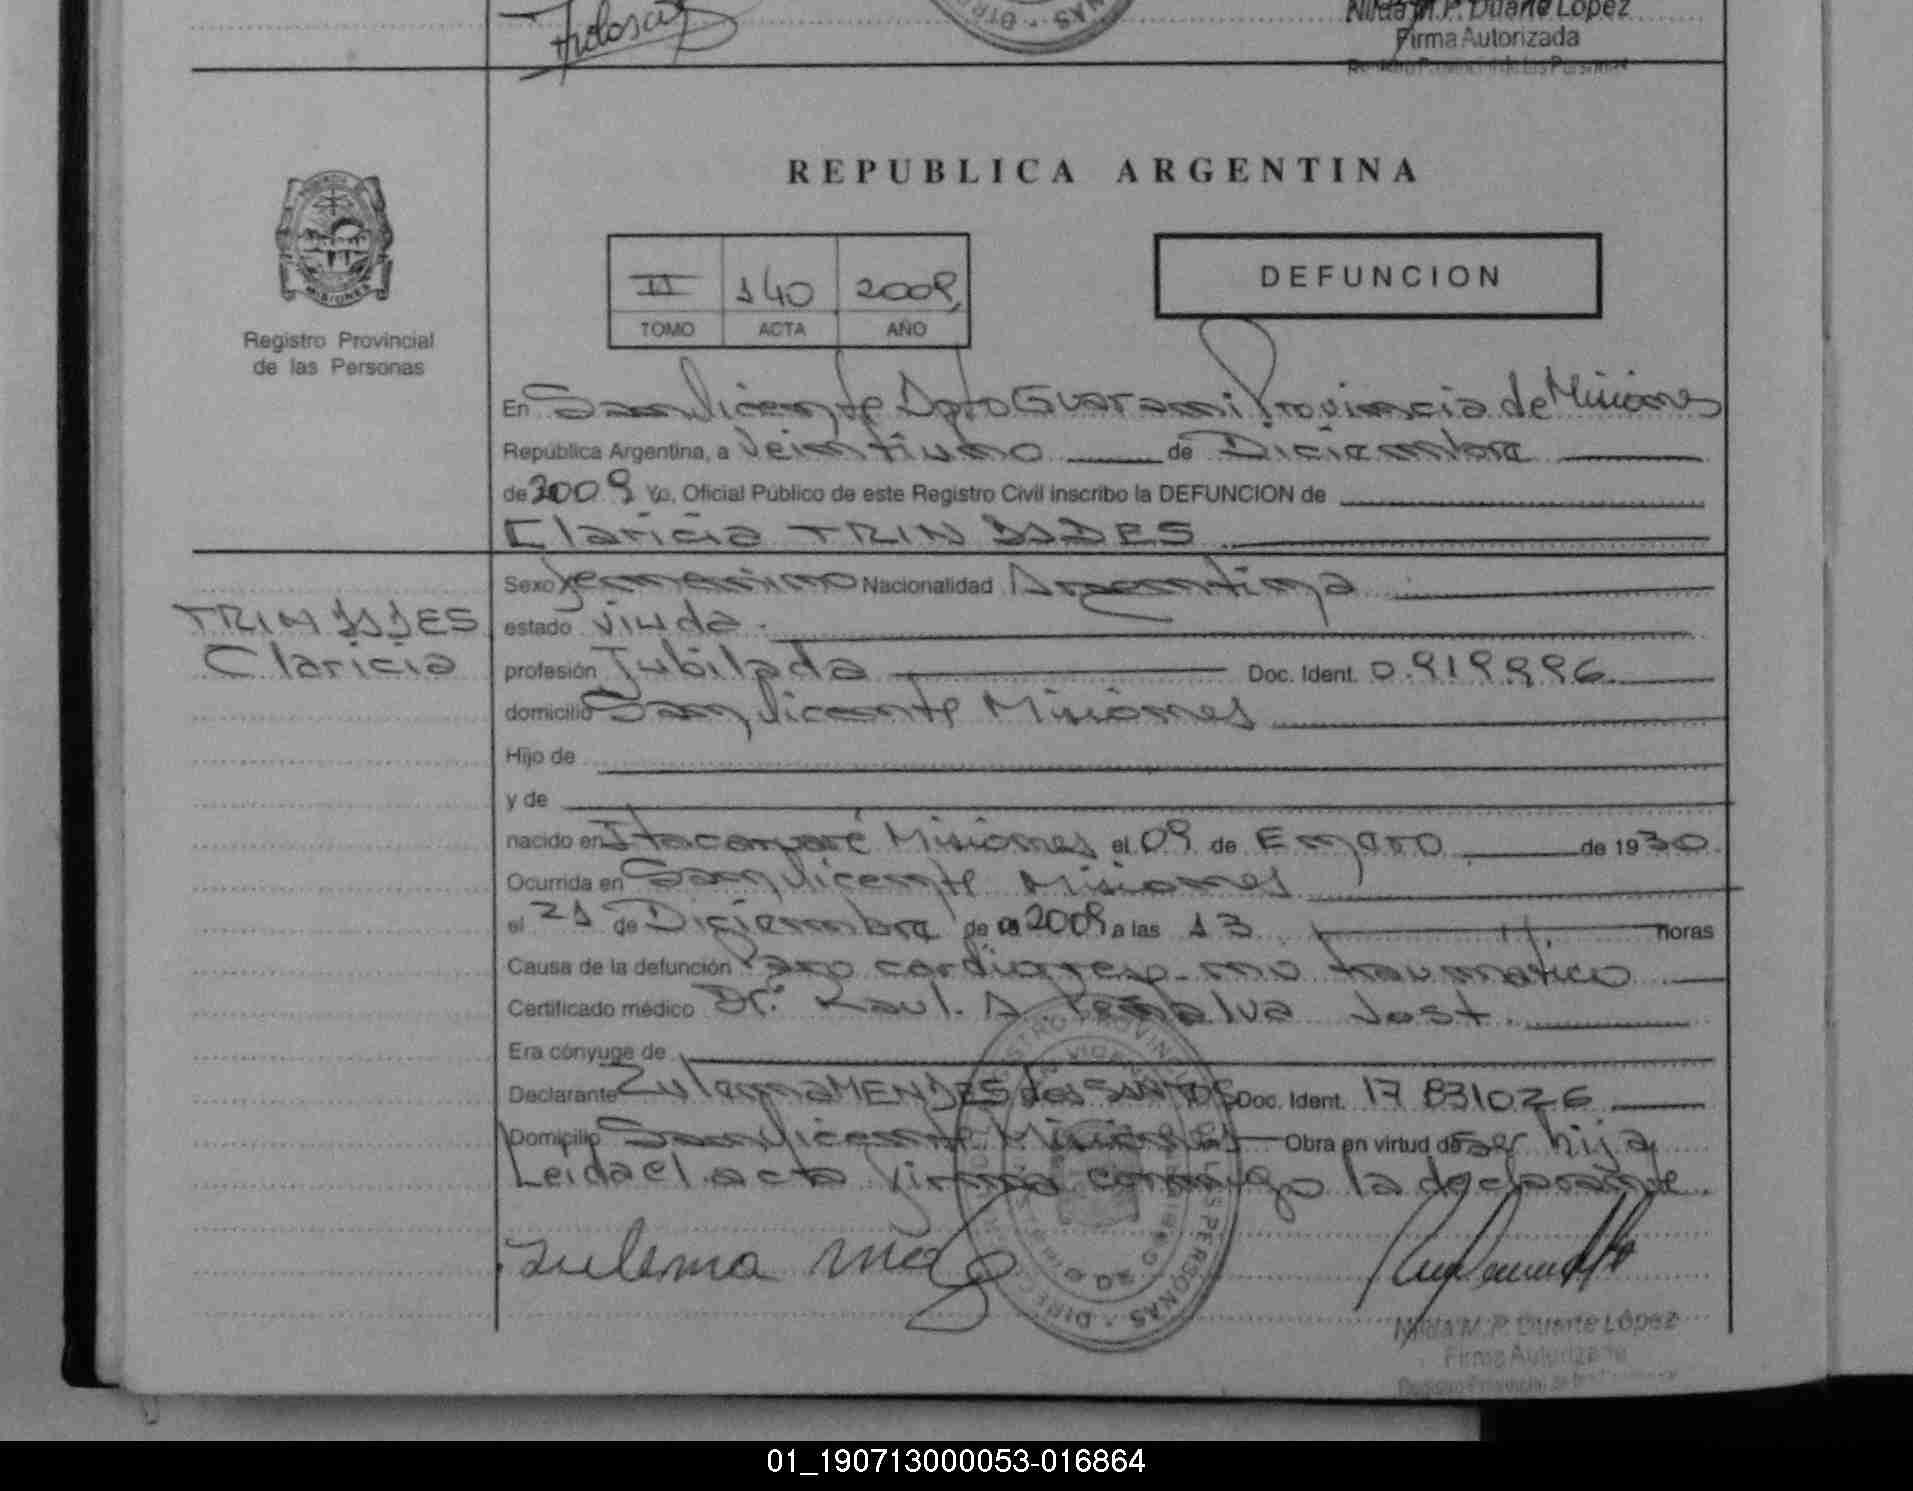 Nilda M. P. Duarte López
Firma Autorizada
Registro Provincial de las Personas
REPUBLICA ARGENTINA
MISIONES
Registro Provincial
de las Personas
II 140 2009
TOMO ACTA AÑO
DEFUNCION
En San Vicente Dpto Guarani Provincia de Misiones
República Argentina, a Veintiuno de Diciembre
de 2009 Yo, Oficial Público de este Registro Civil inscribo la DEFUNCION de
Claricia TRINDADES
TRINDADES
Claricia
Sexo femenino Nacionalidad Argentina
estado viuda.
profesión Jubilada Doc. Ident. 0.919.996
domicilio San Vicente Misiones
Hijo de
y de
nacido en Itacaruaré Misiones el 09 de Enero de 1930
Ocurrida en San Vicente Misiones
el 21 de Diciembre de 2009 a las 13 horas
Causa de la defunción Paro cardioresp. no traumatico
Certificado médico Dr. Raul. A. Peñalva Jost.
Era cónyuge de
Declarante Zulema MENDES dos SANTOS Doc. Ident. 17 831026
Domicilio San Vicente Misiones Obra en virtud de ser hija
Leida el acta firma conmigo la declarante.
Zulema
Nilda M. P. Duarte López
Firma Autorizada
Registro Provincial de las Personas
01_190713000053-016864